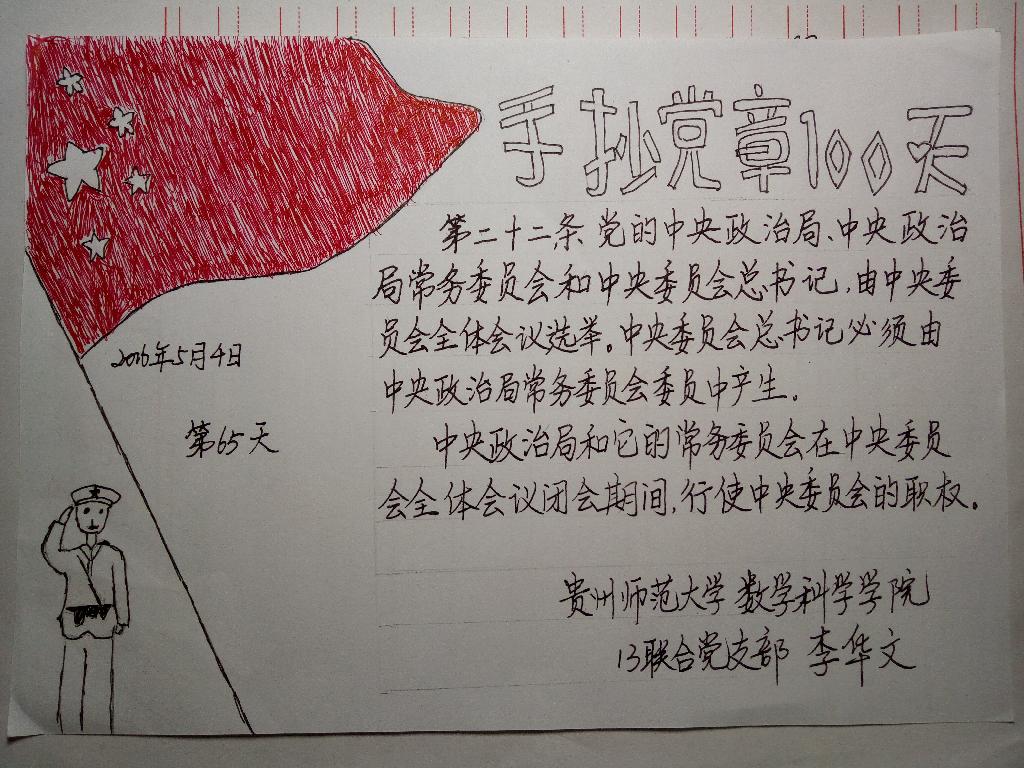 手抄党章100天
第二十二条 党的中央政治局、中央政治
局常务委员会和中央委员会总书记，由中央委
员会全体会议选举。中央委员会总书记必须由
中央政治局常务委员会委员中产生。
中央政治局和它的常务委员会在中央委员
会全体会议闭会期间，行使中央委员会的职权。
2016年5月4日
第65天
贵州师范大学 数学科学学院
13联合党支部 李华文